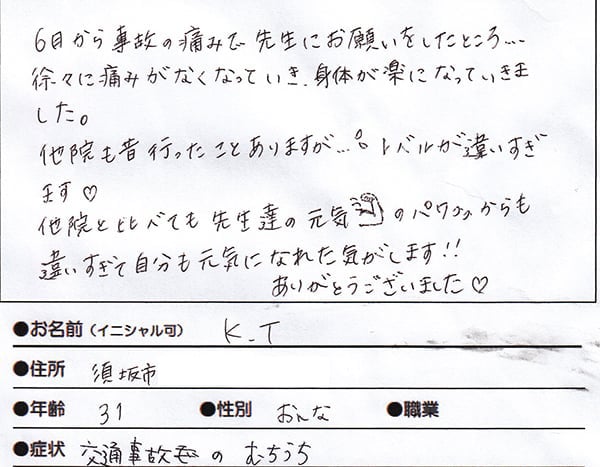 6日から事故の痛みで先生にお願いをしたところ...
徐々に痛みがなくなっていき、身体が楽になっていきま
した。
他院も昔行ったことありますが...。レベルが違いすぎ
ます♡
他院と比べても先生達の元気のパワーからも
違いすぎて自分も元気になれた気がします!!
ありがとうございました♡
●お名前(イニシャル可) K.T
●住所 須坂市
●年齢 31 ●性別 おんな ●職業
●症状 交通事故での むちうち